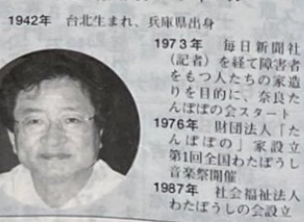 1942年 台北生まれ、兵庫県出身
1973年 毎日新聞社
(記者)を経て障害者
をもつ人たちの家造
りを目的に、奈良た
んぽぽの会スタート
1976年 財団法人「た
んぽぽの」家設立
第1回全国わたぼうし
音楽祭開催
1987年 社会福祉法人
わたぼうしの会設立